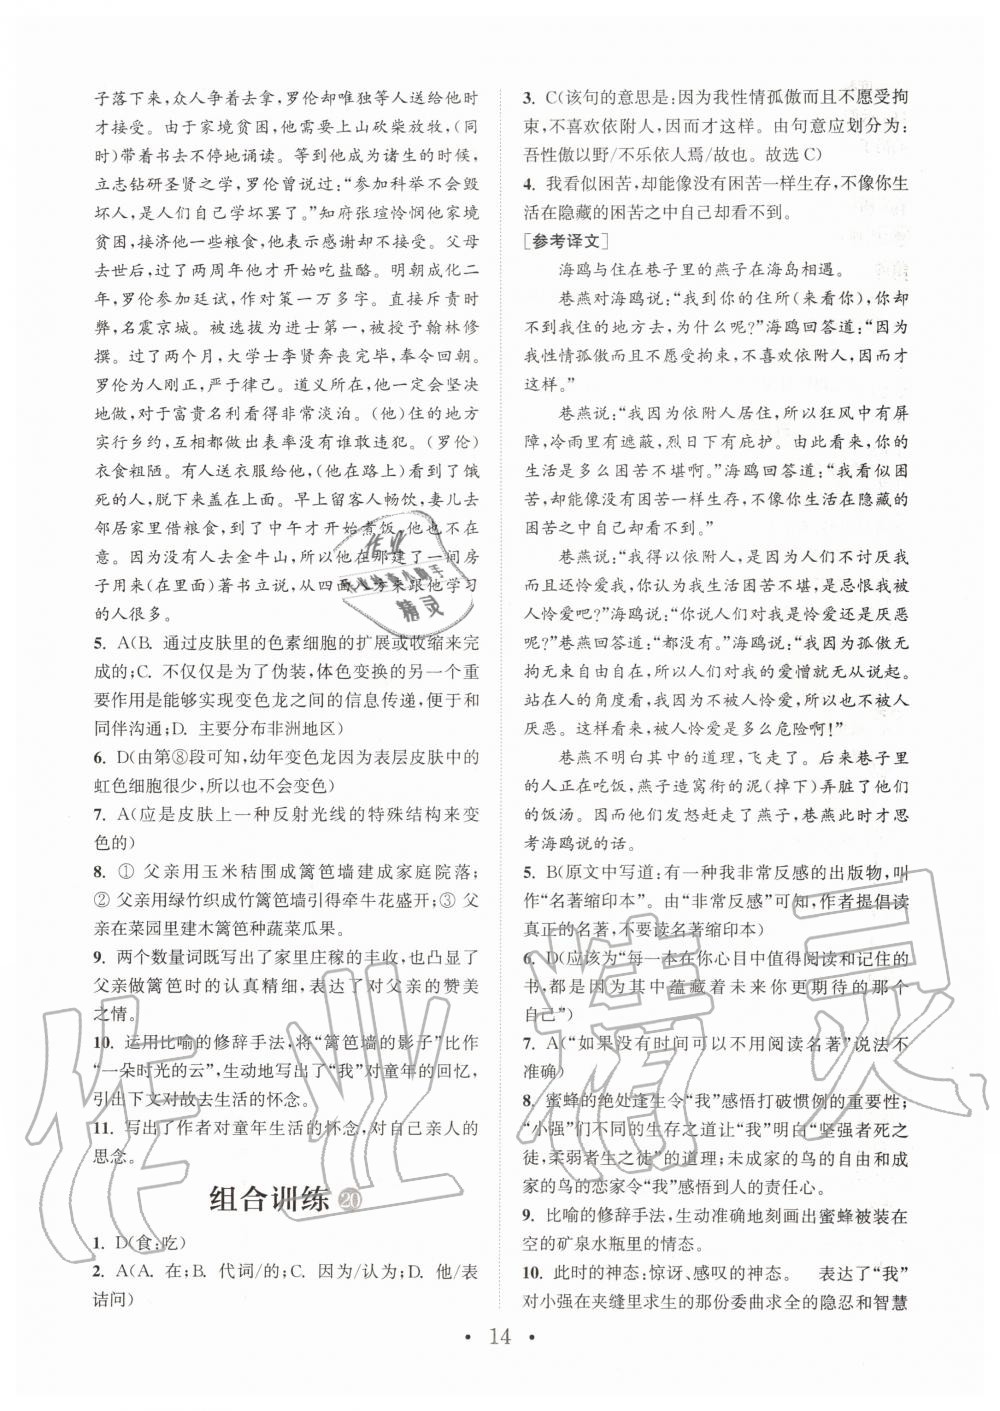 子落下来,众人争着去拿,罗伦却唯独等人送给他时
才接受。由于家境贫困,他需要上山砍柴放牧,(同
时)带着书去不停地诵读。等到他成为诸生的时候,
立志钻研圣贤之学,罗伦曾说过:“参加科举不会毁
坏人,是人们自己学坏罢了。”知府张瑄怜悯他家境
贫困,接济他一些粮食,他表示感谢却不接受。父母
去世后,过了两周年他才开始吃盐酪。明朝成化二
年,罗伦参加廷试,作对策一万多字。直接斥责时
弊,名震京城。被选拔为进士第一,被授予翰林修
撰。过了两个月,大学士李贤奔丧完毕,奉命回朝。
罗伦为人刚正,严于律己。道义所在,他一定会坚决
地做,对于富贵名利看得非常淡泊。(他)住的地方
实行乡约,互相都做出表率没有谁敢违犯。(罗伦)
衣食粗陋。有人送衣服给他,(他在路上)看到了饿
死的人,脱下来盖在上面。早上留客人畅饮,妻儿去
邻居家里借粮食,到了中午才开始煮饭,他也不在
意。因为没有人去金牛山,所以他在那建了一间房
子用来(在里面)著书,从四面八方来跟他学习
的人很多。
5. A(B. 通过皮肤里的色素细胞的扩展或收缩来完
成的;C. 不仅仅是为了伪装,体色变换的另一个重
要作用是能够实现变色龙之间的信息传递,便于和
同伴沟通;D. 主要分布非洲地区)
6. D(由第⑧段可知,幼年变色龙因为表层皮肤中的
虹色细胞很少,所以也不会变色)
7. A(应是皮肤上一种反射光线的特殊结构来变
色的)
8. ① 父亲用玉米秸围成篱笆墙建成家庭院落;
② 父亲用绿竹织成竹篱笆墙引得牵牛花盛开;③ 父
亲在菜园里建木篱笆种蔬菜瓜果。
9. 两个数量词既写出了家里庄稼的丰收,也凸显了
父亲做篱笆时的认真精细,表达了对父亲的赞美
之情。
10. 运用比喻的修辞手法,将“篱笆墙的影子”比作
“一朵时光的云”,生动地写出了“我”对童年的回忆,
引出下文对故去生活的怀念。
11. 写出了作者对童年生活的怀念,对自己亲人的
思念。
组合训练 20
1. D(食;吃)
2. A(A. 在;B. 代词/的;C. 因为/认为;D. 他/表
诘问)
3. C(该句的意思是:因为我性情孤傲而且不愿受拘
束,不喜欢依附人,因而才这样。由句意应划分为:
吾性傲以野/不乐依人焉/故也。故选C)
4. 我看似困苦,却能像没有困苦一样生存,不像你生
活在隐藏的困苦之中自己却看不到。
[参考译文]
海鸥与住在巷子里的燕子在海岛相遇。
巷燕对海鸥说:“我到你的住所(来看你),你却
不到我住的地方去,为什么呢?”海鸥回答道:“我的
性情孤傲而且不愿受拘束,不喜欢依附人,因而才
这样。”
巷燕说:“我因为依附人居住,所以狂风中有屏
障,冷雨里有遮蔽,烈日下有庇护。由此看来,你的
生活是多么困苦不堪啊。”海鸥回答道:“我看似困
苦,却能像没有困苦一样生存,不像你生活在隐藏的
困苦之中自己却看不到。”
巷燕说:“我得以依附人,是因为人们不讨厌我
而且还怜爱我,你却认为我生活困苦不堪,是想要被
人怜爱吧?”海鸥说:“你说人们对我是怜爱还是厌恶
呢?”巷燕回答道:“都没有。”海鸥说:“我因为孤傲无
拘无束自由自在,所以人们对我的爱憎就无从说起。
站在人的角度看,我因为不被人怜爱,所以不被人
厌恶。这样看来,被人怜爱是多么危险啊!”
巷燕不明白其中的道理,飞走了。后来巷子里
的人正在吃饭,燕子造窝衔的泥(掉下)弄脏了他们
的饭汤。因而他们发怒赶走了燕子,巷燕此时才思
考海鸥说的话。
5. B(原文中写道:有一种我非常反感的出版物,叫
作“名著缩印本”。由“非常反感”可知,作者提倡读
真正的名著,不要读名著缩印本)
6. D(应该为“每一本在你心目中值得阅读和记住的
书,都是因为其中蕴藏着大家更期待的那个
自己”)
7. A(“如果没有时间可以不用阅读名著”说法不
准确)
8. 蜜蜂的绝处逢生令“我”感悟打破惯例的重要性;
“小强”们不同的生存之道让“我”明白“坚强者死之
徒,柔弱者生之徒”的道理;未成家的鸟的自由和成
家的鸟的恋家令“我”感悟到人的责任心。
9. 比喻的修辞手法,生动准确地刻画出蜜蜂被装在
空的矿泉水瓶里的情态。
10. 此时的神态:惊讶、感叹的神态。 表达了“我”
对小强在夹缝里求生的那份委曲求全的隐忍和智慧
• 14 •
作业精灵